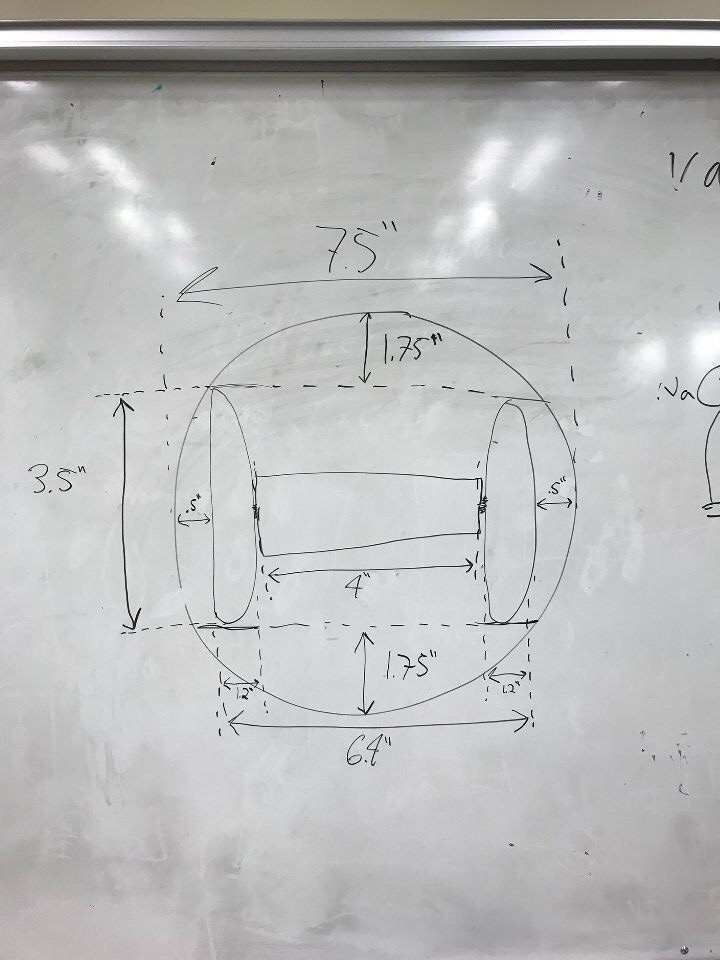 7.5"
1.75"
3.5"
.5"
.5"
4"
1.75"
1.2"
1.2"
6.4"